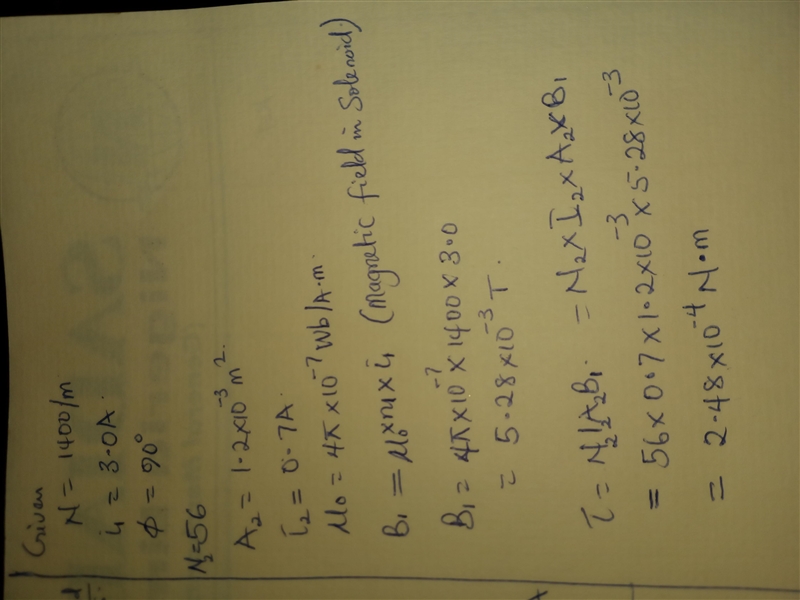 Given
N = 1400/m
i₁ = 3.0A.
Φ = 90°
N₂=56
A₂ = 1.2x10⁻³ m².
I₂ = 0.7A.
μ₀ = 4π x10⁻⁷ Wb/A.m.
B₁ = μ₀ x n₁ x i₁ (Magnetic field in Solenoid.)
B₁ = 4π x10⁻⁷ x 1400 x 3.0
= 5.28 x10⁻³ T.
τ = N₂I₂A₂B₁. = N₂ x I₂ x A₂ x B₁
= 56 x 0.7 x 1.2x10⁻³ x 5.28x10⁻³
= 2.48x10⁻⁴ N.m